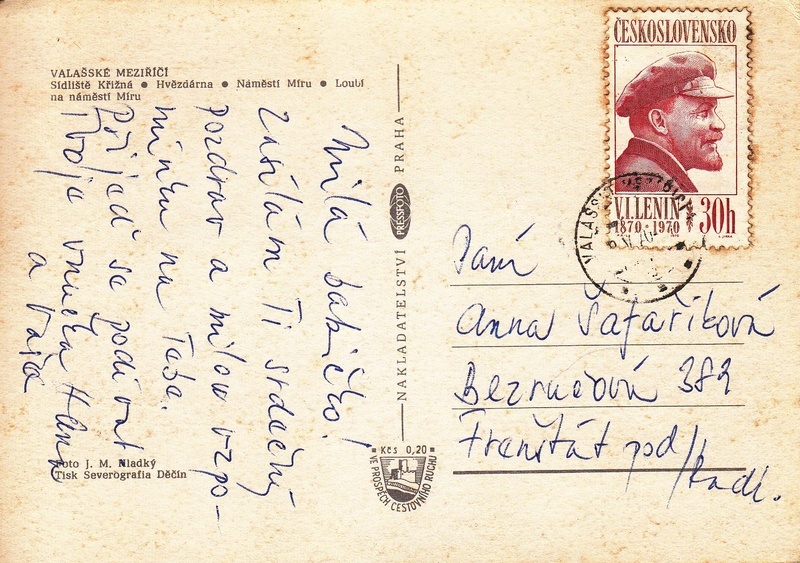 VALAŠSKÉ MEZIŘÍČÍ
Sídliště Křižná ● Hvězdárna ● Náměstí Míru ● Loubí
na náměstí Míru
Milá babičko!
Zasílám Ti srdečný
pozdrav a milou vzpo-
mínku na Tebe.
Přijeď se podívat
Tvoje vnučka Hana
a Vaša
Foto J. M. Mladký
Tisk Severografia Děčín
NAKLADATELSTVÍ PRESSFOTO PRAHA
Kčs 0,20
VE PROSPĚCH CESTOVNÍHO RUCHU
ČESKOSLOVENSKO
V.I.LENIN
1870-1970
30h
VALAŠSKÉ MEZIŘÍČÍ
Paní
Anna Šafaříková
Bezručova 389
Frenštát pod/
Radh.